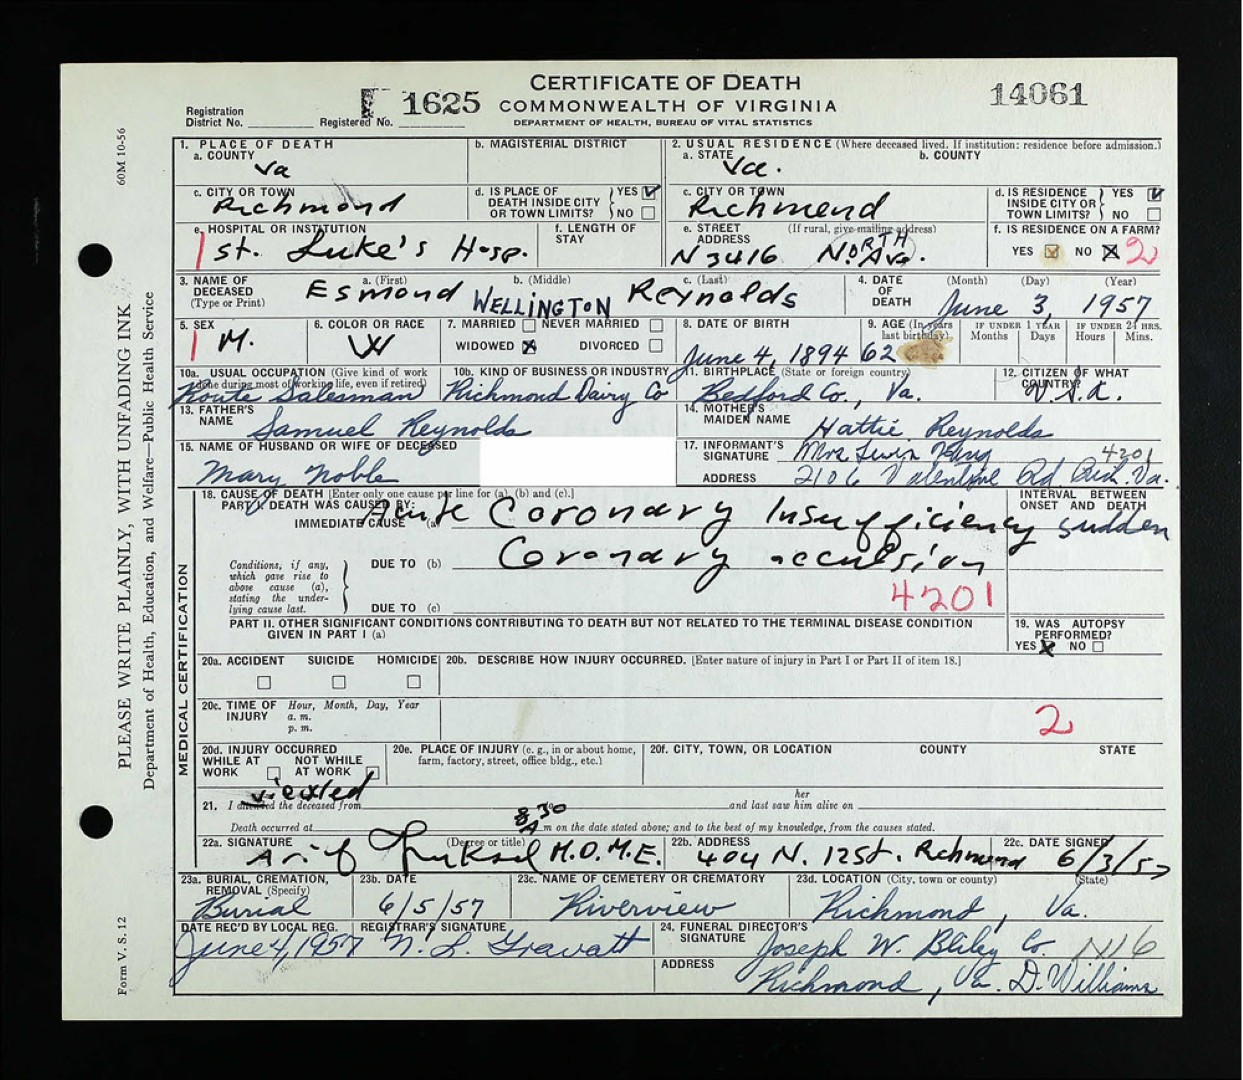 CERTIFICATE OF DEATH
COMMONWEALTH OF VIRGINIA
DEPARTMENT OF HEALTH, BUREAU OF VITAL STATISTICS
14061
Registration District No.
Registered No. 1625
60M 10-56
PLEASE WRITE PLAINLY, WITH UNFADING INK
Department of Health, Education, and Welfare—Public Health Service
Form V. S. 12
1. PLACE OF DEATH
a. COUNTY Va
b. MAGISTERIAL DISTRICT
2. USUAL RESIDENCE (Where deceased lived. If institution: residence before admission.)
a. STATE Va.
b. COUNTY
c. CITY OR TOWN Richmond
d. IS PLACE OF DEATH INSIDE CITY OR TOWN LIMITS? YES NO
c. CITY OR TOWN Richmond
d. IS RESIDENCE INSIDE CITY OR TOWN LIMITS? YES NO
e. HOSPITAL OR INSTITUTION St. Luke's Hosp.
f. LENGTH OF STAY
e. STREET ADDRESS (If rural, give mailing address) N 3416 NORTH Ave.
f. IS RESIDENCE ON A FARM? YES NO 2
3. NAME OF DECEASED (Type or Print)
a. (First) Esmond
b. (Middle) WELLINGTON
c. (Last) Reynolds
4. DATE OF DEATH (Month) (Day) (Year) June 3, 1957
5. SEX M.
6. COLOR OR RACE W
7. MARRIED NEVER MARRIED
WIDOWED DIVORCED
8. DATE OF BIRTH June 4, 1894
9. AGE (In years last birthday) 62
IF UNDER 1 YEAR Months Days
IF UNDER 24 HRS. Hours Mins.
10a. USUAL OCCUPATION (Give kind of work done during most of working life, even if retired) Route Salesman
10b. KIND OF BUSINESS OR INDUSTRY Richmond Dairy Co
11. BIRTHPLACE (State or foreign country) Bedford Co., Va.
12. CITIZEN OF WHAT COUNTRY? U.S.A.
13. FATHER'S NAME Samuel Reynolds
14. MOTHER'S MAIDEN NAME Hattie Reynolds
15. NAME OF HUSBAND OR WIFE OF DECEASED Mary Noble
17. INFORMANT'S SIGNATURE Mrs King 4201
ADDRESS 2106 Valentine Rd. Rich. Va.
MEDICAL CERTIFICATION
18. CAUSE OF DEATH [Enter only one cause per line for (a), (b) and (c).]
INTERVAL BETWEEN ONSET AND DEATH
PART I. DEATH WAS CAUSED BY:
IMMEDIATE CAUSE (a) Acute Coronary Insufficiency sudden
Conditions, if any, which gave rise to above cause (a), stating the underlying cause last.
DUE TO (b) Coronary occulsion
DUE TO (c) 4201
PART II. OTHER SIGNIFICANT CONDITIONS CONTRIBUTING TO DEATH BUT NOT RELATED TO THE TERMINAL DISEASE CONDITION GIVEN IN PART I (a)
19. WAS AUTOPSY PERFORMED? YES NO
20a. ACCIDENT SUICIDE HOMICIDE
20b. DESCRIBE HOW INJURY OCCURRED. [Enter nature of injury in Part I or Part II of item 18.]
20c. TIME OF INJURY Hour, Month, Day, Year
a. m.
p. m.
2
20d. INJURY OCCURRED
WHILE AT WORK NOT WHILE AT WORK
20e. PLACE OF INJURY (e. g., in or about home, farm, factory, street, office bldg., etc.)
20f. CITY, TOWN, OR LOCATION COUNTY STATE
viewed
21. I attended the deceased from to and last saw her him alive on
Death occurred at 8 30 A m on the date stated above; and to the best of my knowledge, from the causes stated.
22a. SIGNATURE (Degree or title) M.D. M.E.
22b. ADDRESS 404 N. 12 St. Richmond
22c. DATE SIGNED 6/3/57
23a. BURIAL, CREMATION, REMOVAL (Specify) Burial
23b. DATE 6/5/57
23c. NAME OF CEMETERY OR CREMATORY Riverview
23d. LOCATION (City, town or county) (State) Richmond, Va.
DATE REC'D BY LOCAL REG. June 4, 1957
REGISTRAR'S SIGNATURE N. L. Gravatt
24. FUNERAL DIRECTOR'S SIGNATURE Joseph W. Bliley Co. N16
ADDRESS Richmond, Va. D. Williams